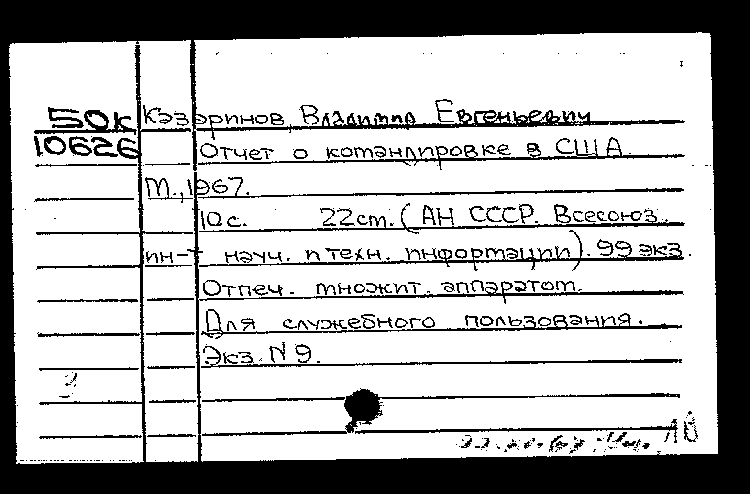 50к Казаринов, Владимир Евгеньевич
10626 Отчет о командировке в США.
М., 1967.
10с. 22см. (АН СССР. Всесоюз.
ин-т науч. и техн. информации). 99 экз.
Отпеч. множит. аппаратом.
Для служебного пользования.
Экз. N 9.